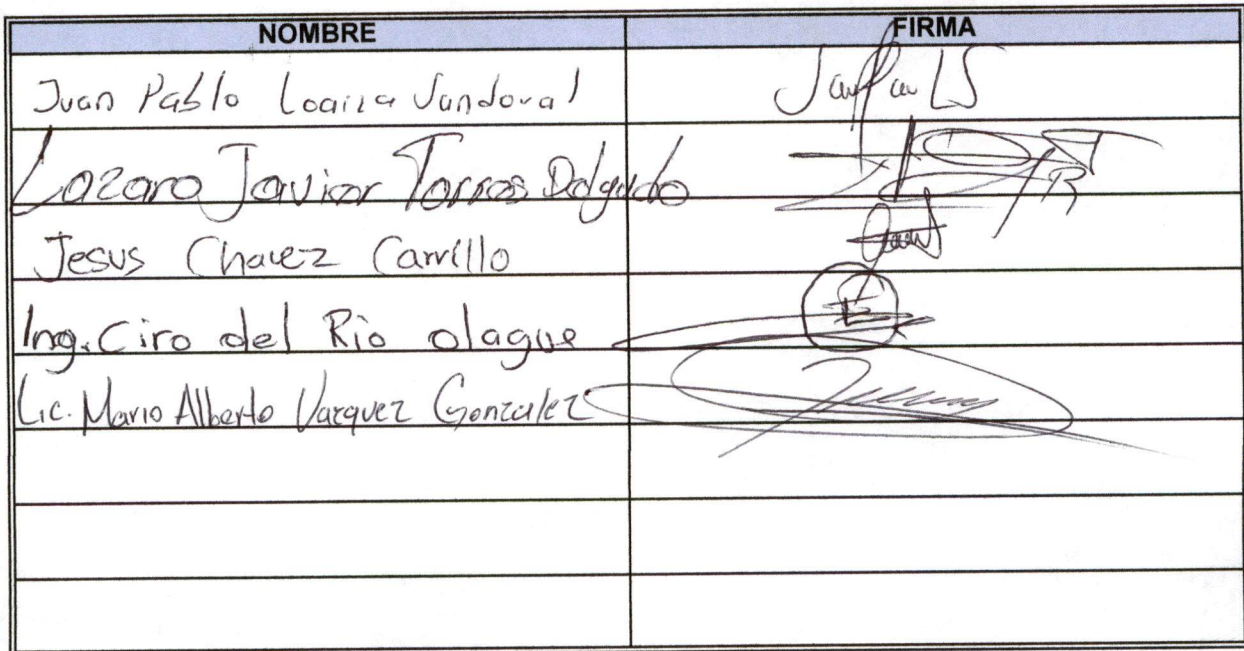 NOMBRE FIRMA
Juan Pablo Loaiza Sandoval
Lazaro Javier Torres Delgado
Jesus Chavez Carrillo
Ing. Ciro del Rio olague
Lic. Mario Alberto Vazquez Gonzalez